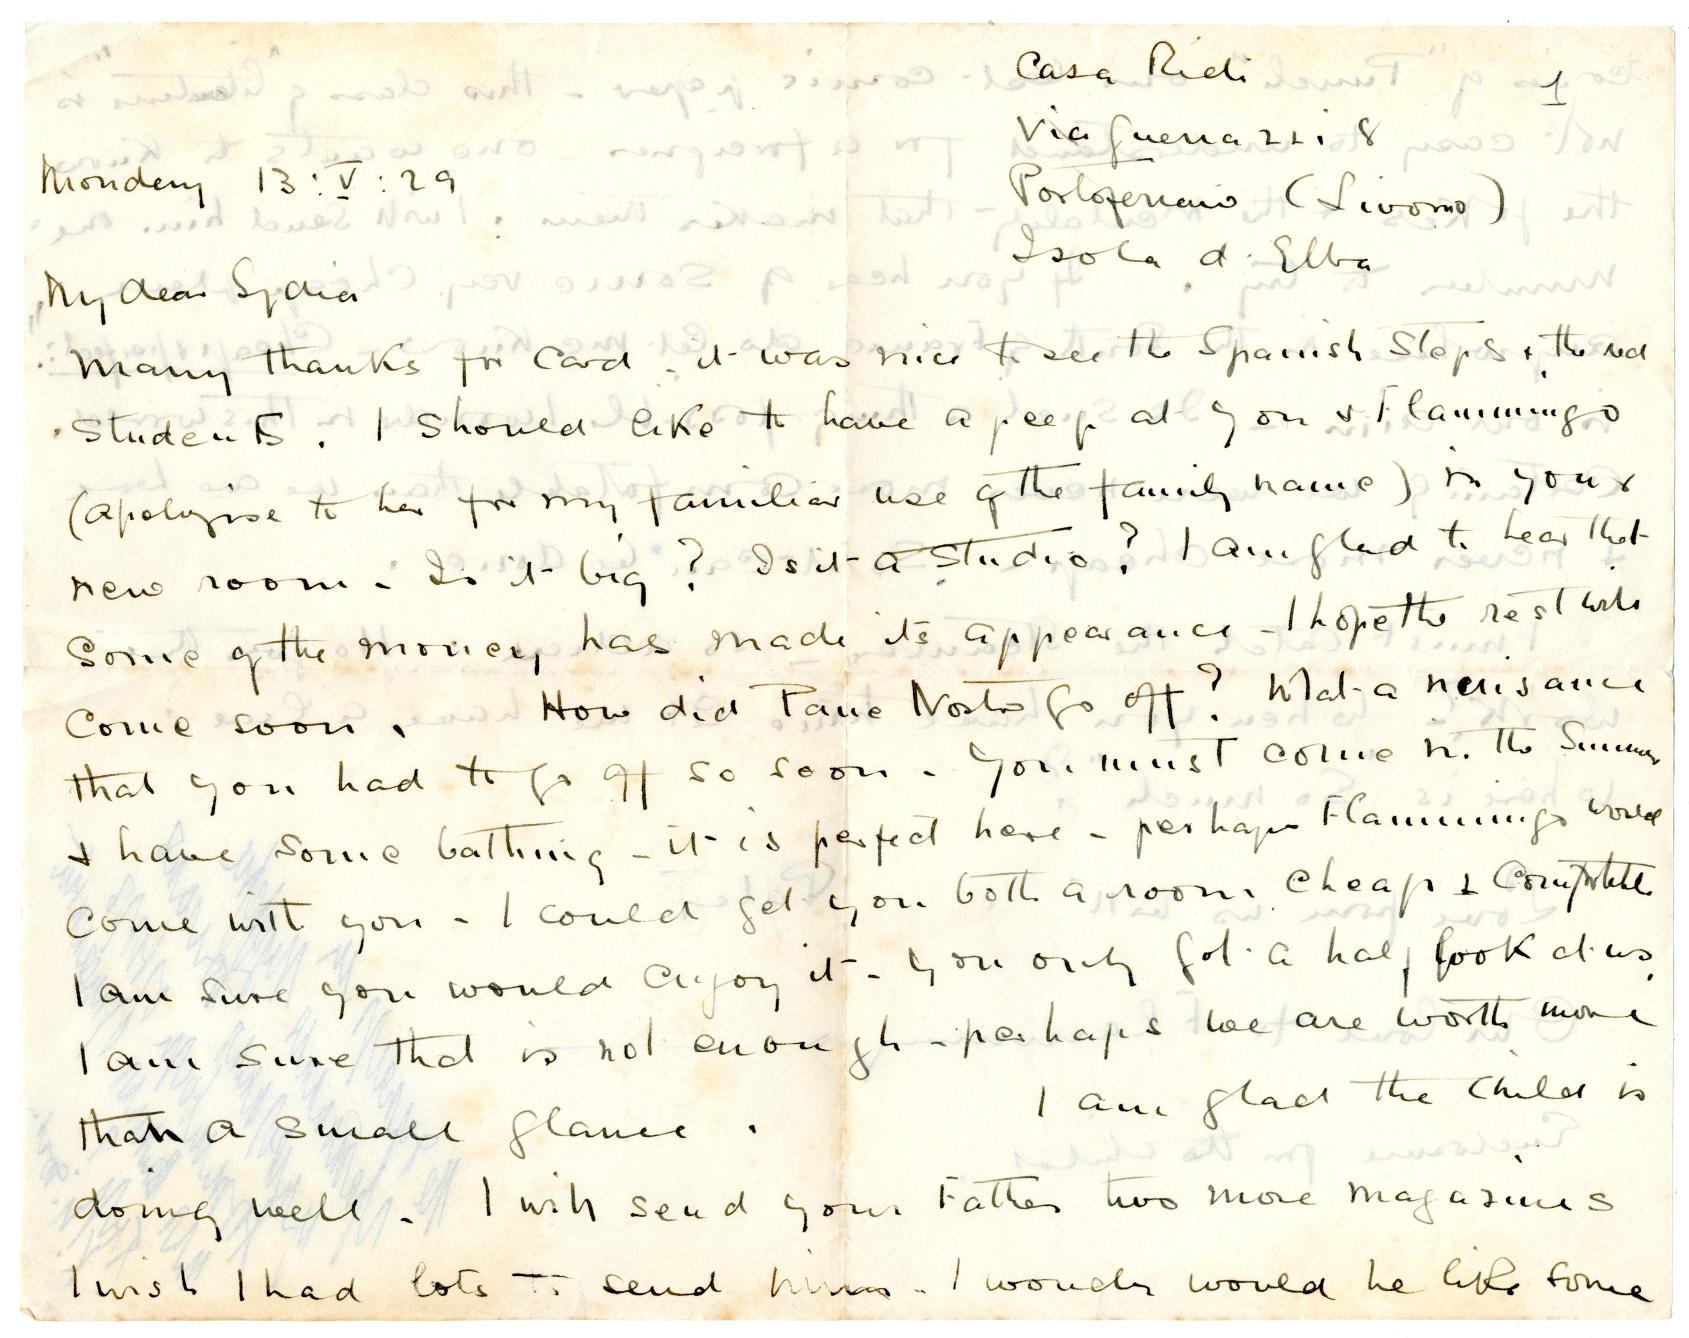 Casa Ridi
1
Via Guerrazzi 8
Monday 13:V:29
Portoferraio (Livorno)
Isola d'Elba
My dear Lydia
Many thanks for card - it was nice to see the Spanish Steps & the red
students. I should like to have a peep at you & Flammingo
(apologise to her for my familiar use of the family name) in your
new room - Is it big? Is it a studio? I am glad to hear that
some of the money has made its appearance - I hope the rest will
come soon. How did Pane Nostro go off? What a neuisance
that you had to go off so soon - You must come in the Summer
& have some bathing - it is perfect here - perhaps Flammingo would
come with you - I could get you both a room cheap & Comfortable
I am sure you would enjoy it - You only got a half look at us,
I am sure that is not enough - perhaps we are worth more
than a small glance. I am glad the child is
doing well - I will send your Father two more magazines
I wish I had lots to send him - I wonder would he like some